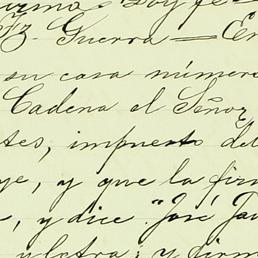 firma. Doy fe
Fz. Guerra = En
su casa número
Cadena el Señor
tes, impuesto del
ye, y que la firm
, y dice "José Ja
y letra; y firm